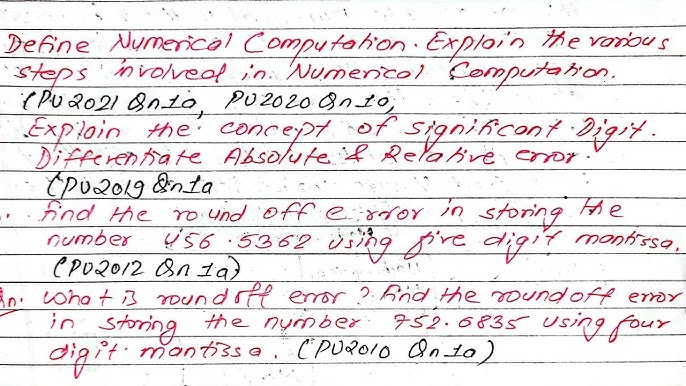 Define Numerical Computation. Explain the various
steps involved in Numerical Computation.
(PU2021 Qn1a, PU2020 Qn1a,
Explain the concept of significant Digit.
Differentiate Absolute & Relative error.
(PU2019 Qn1a
. find the round off error in storing the
number 456.5362 using five digit mantissa.
(PU2012 Qn 1a)
Qn. What is round off error? Find the roundoff error
in storing the number 752.6835 using four
digit mantissa. (PU2010 Qn1a)